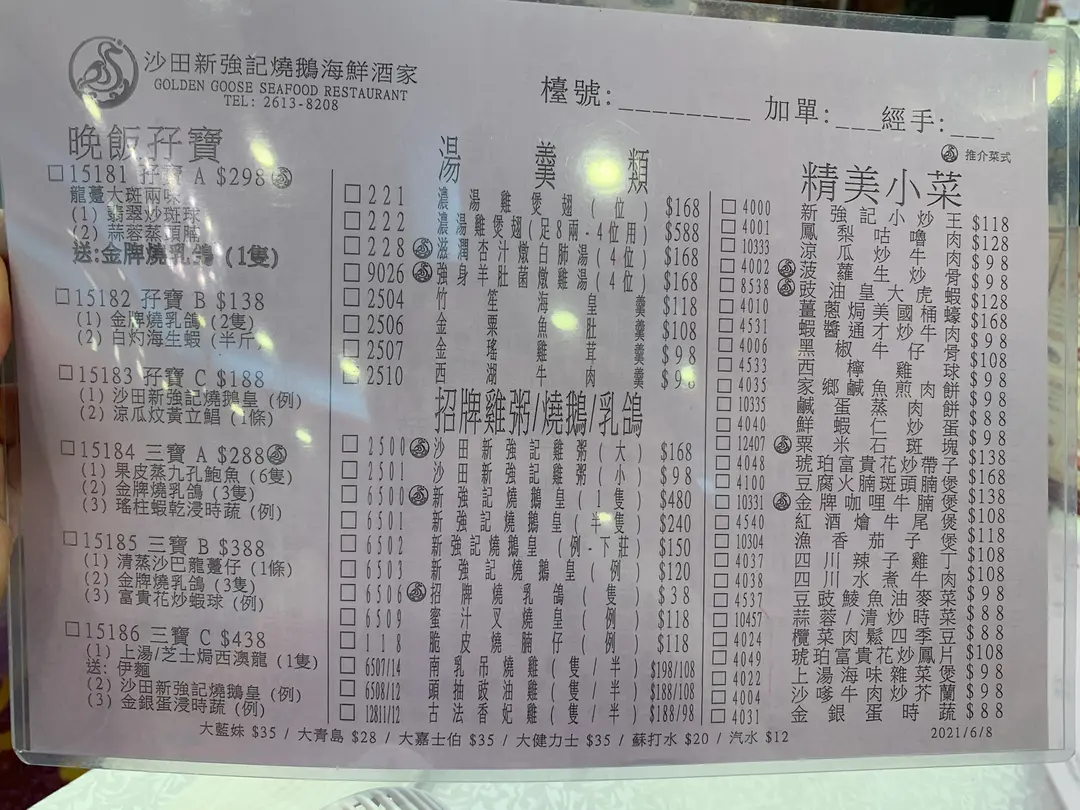 沙田新強記燒鵝海鮮酒家
GOLDEN GOOSE SEAFOOD RESTAURANT
TEL: 2613-8208
檯號:________ 加單:___經手:___
推介菜式
晚飯孖寶
15181 孖寶 A $298
龍躉大斑兩味
(1) 翡翠炒斑球
(2) 蒜蓉蒸頭腩
送:金牌燒乳鴿 (1隻)
15182 孖寶 B $138
(1) 金牌燒乳鴿 (2隻)
(2) 白灼海生蝦 (半斤)
15183 孖寶 C $188
(1) 沙田新強記燒鵝皇 (例)
(2) 涼瓜炆黃立鯧 (1條)
15184 三寶 A $288
(1) 果皮蒸九孔鮑魚 (6隻)
(2) 金牌燒乳鴿 (3隻)
(3) 瑤柱蝦乾浸時蔬 (例)
15185 三寶 B $388
(1) 清蒸沙巴龍躉仔 (1條)
(2) 金牌燒乳鴿 (3隻)
(3) 富貴花炒蝦球 (例)
15186 三寶 C $438
(1) 上湯/芝士焗西澳龍 (1隻)
送: 伊麵
(2) 沙田新強記燒鵝皇 (例)
(3) 金銀蛋浸時蔬 (例)
湯羹類
221 濃湯雞煲翅(位) $168
222 濃湯雞煲翅(足8兩-4位用) $588
228 滋潤杏汁燉白肺湯(4位) $168
9026 強身羊肚菌燉雞湯(4位) $168
2504 竹笙海皇羹 $118
2506 金粟魚肚羹 $108
2507 金瑤雞茸羹 $98
2510 西湖牛肉羹 $98
招牌雞粥/燒鵝/乳鴿
2500 沙田新強記雞粥(大) $168
2501 沙田新強記雞粥(小) $98
6500 新強記燒鵝皇(1隻) $480
6501 新強記燒鵝皇(半隻) $240
6502 新強記燒鵝皇(例-下莊) $150
6503 新強記燒鵝皇(例) $120
6506 招牌燒乳鴿(隻) $38
6509 蜜汁叉燒皇(例) $118
118 脆皮燒腩仔(例) $118
6507/14 南乳吊燒雞(隻/半) $198/108
6508/12 頭抽豉油雞(隻/半) $188/108
12811/12 古法香妃雞(隻/半) $188/98
精美小菜
4000 新強記小炒王 $118
4001 鳳梨咕嚕肉 $128
10333 涼瓜炒牛肉 $98
4002 菠蘿生炒骨 $98
8538 豉油皇大虎蝦 $128
4010 薑蔥焗美國桶蠔 $168
4531 蝦醬通才炒牛肉 $98
4006 黑椒牛仔骨 $108
4533 西檸雞球 $98
4035 家鄉鹹魚煎肉餅 $98
10335 鹹蛋蒸肉餅 $88
4040 鮮蝦仁炒蛋 $98
12407 粟米石斑塊 $138
4048 琥珀富貴花炒帶子 $168
4100 豆腐火腩斑頭腩煲 $138
10331 金牌咖喱牛腩煲 $108
4540 紅酒燴牛尾煲 $118
10304 漁香茄子煲 $108
4037 四川辣子雞丁 $108
4038 四川水煮牛肉 $108
4537 豆豉鯪魚油麥菜 $88
10457 蒜蓉/清炒時菜 $88
4024 欖菜肉鬆四季豆 $88
4049 琥珀富貴花炒鳳片 $108
4022 上湯海味雜菜煲 $98
4004 沙嗲牛肉炒芥蘭 $98
4031 金銀蛋時蔬 $88
大藍妹 $35 / 大青島 $28 / 大嘉士伯 $35 / 大健力士 $35 / 蘇打水 $20 / 汽水 $12
2021/6/8